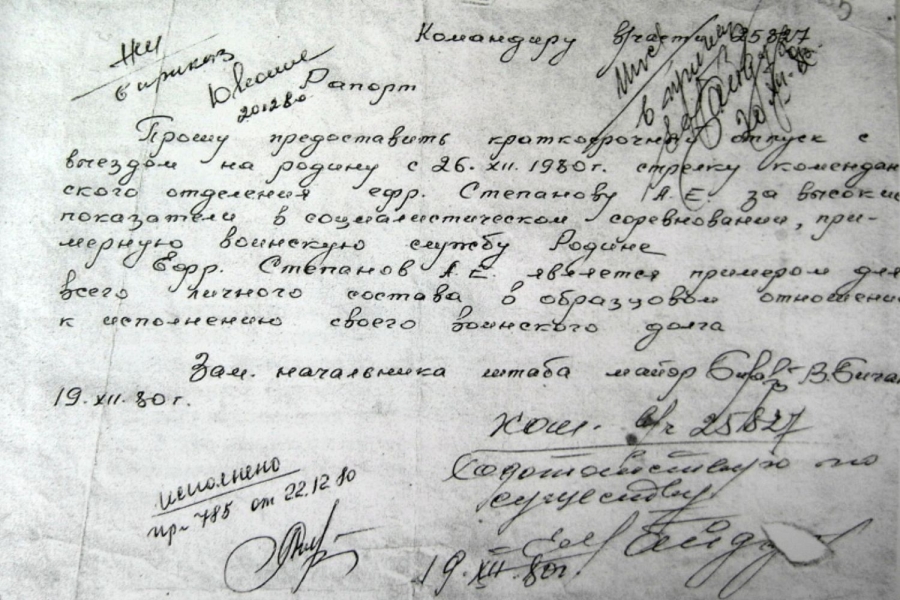 Командиру в/части 25827
НШ
в приказ
20.12.80
Рапорт
Прошу предоставить краткосрочный отпуск с
выездом на родину с 26.XII.1980г. стрелку комендан
ского отделения ефр. Степанову А.Е. за высокие
показатели в социалистическом соревновании, при-
мерную воинскую службу Родине
Ефр. Степанов А.Е. является примером для
всего личного состава в образцовом отношении
к исполнению своего воинского долга
Зам. начальника штаба майор В.Бича
19.XII.80г.
в/ч 25827
Ходатайствую по
существу
19.XII.80г.
исполнено
пр- 785 от 22.12.80